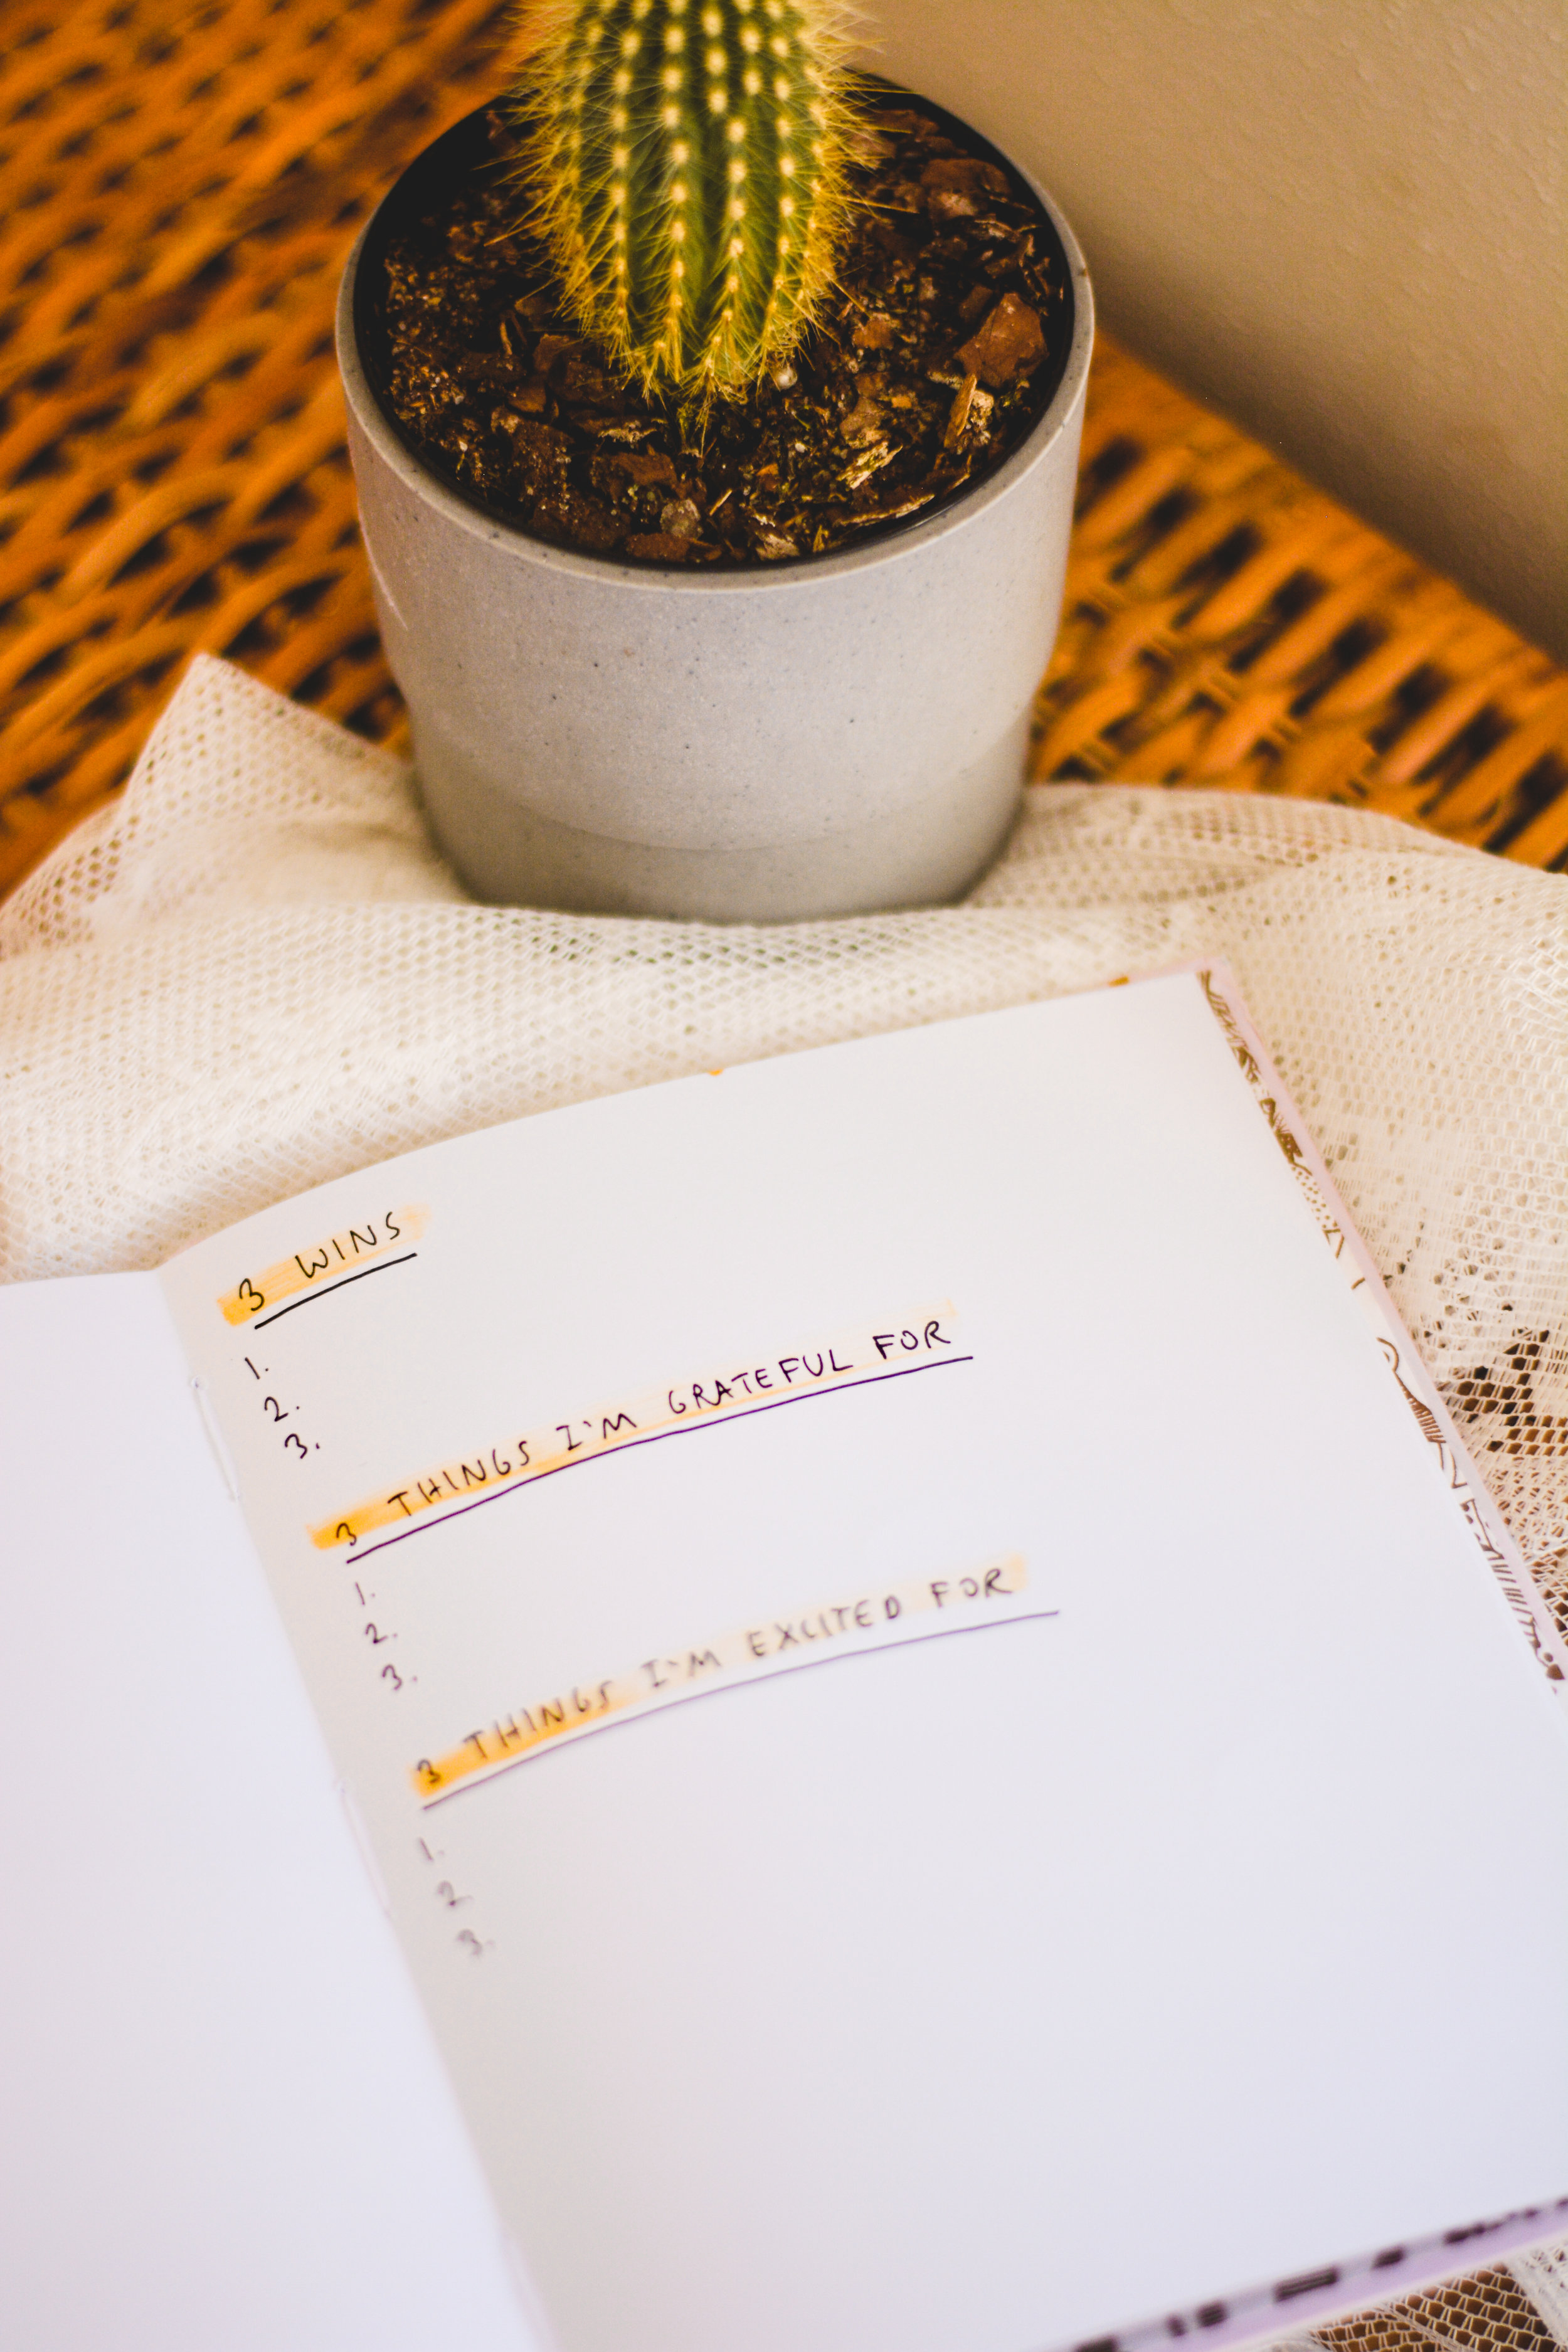 3 WINS
1.
2.
3.
3 THINGS I'M GRATEFUL FOR
1.
2.
3.
3 THINGS I'M EXCITED FOR
1.
2.
3.